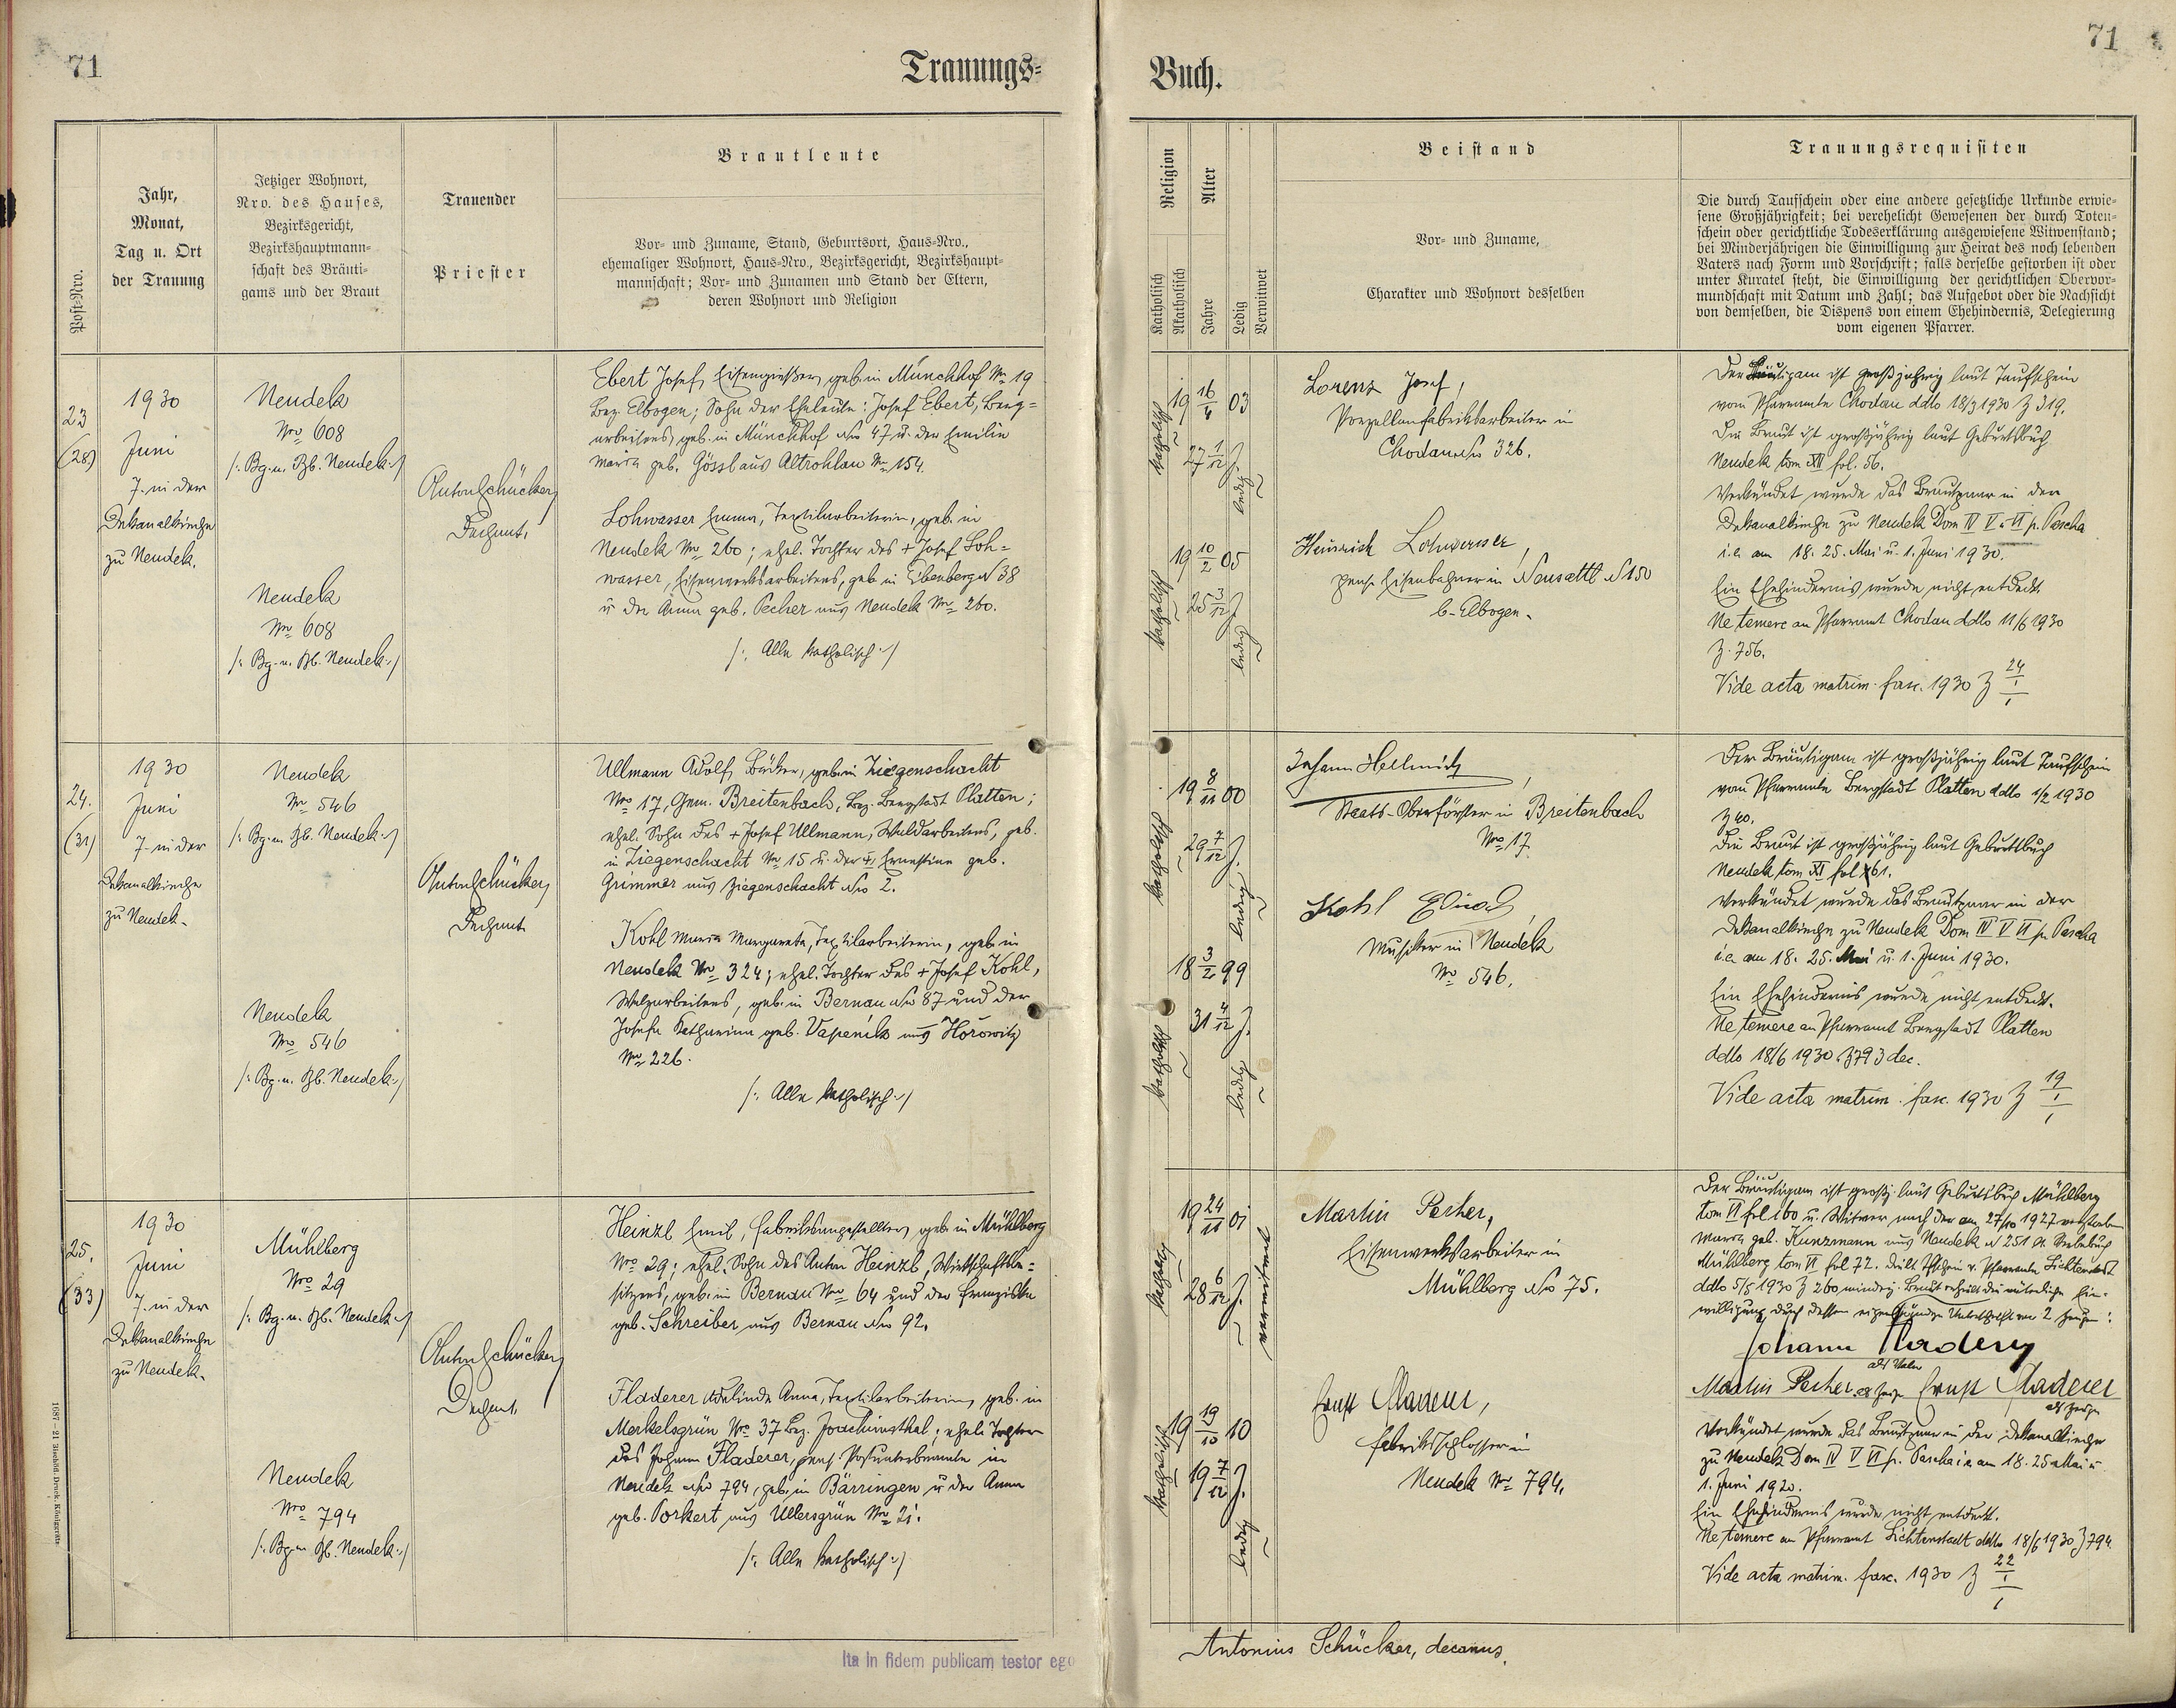 71
Trauungs-
Buch.
71
Post-Nro.
Jahr,
Monat,
Tag u. Ort
der Trauung
Jetziger Wohnort,
Nro. des Hauses,
Bezirksgericht,
Bezirkshauptmann-
schaft des Bräuti-
gams und der Braut
Trauender
Priester
Brautleute
Vor- und Zuname, Stand, Geburtsort, Haus-Nro.,
ehemaliger Wohnort, Haus-Nro., Bezirksgericht, Bezirkshaupt-
mannschaft; Vor- und Zunamen und Stand der Eltern,
deren Wohnort und Religion
Religion
Katholisch
Akatholisch
Alter
Jahre
Ledig
Verwitwet
Beistand
Vor- und Zuname,
Charakter und Wohnort desselben
Trauungsrequisiten
Die durch Taufschein oder eine andere gesetzliche Urkunde erwie-
sene Großjährigkeit; bei verehelicht Gewesenen der durch Toten-
schein oder gerichtliche Todeserklärung ausgewiesene Witwenstand;
bei Minderjährigen die Einwilligung zur Heirat des noch lebenden
Vaters nach Form und Vorschrift; falls derselbe gestorben ist oder
unter Kuratel steht, die Einwilligung der gerichtlichen Obervor-
mundschaft mit Datum und Zahl; das Aufgebot oder die Nachsicht
von demselben, die Dispens von einem Ehehindernis, Delegierung
vom eigenen Pfarrer.
23
(28)
1930
Juni
7. in der
Dekanalkirche
zu Neudek.
Neudek
Nro 608
/: Bg. u. Bb. Neudek :/
Neudek
Nro 608
/: Bg. u. Bb. Neudek :/
Anton Schücker,
Dechant.
Ebert Josef, Eisengießer, geb. in Münchhof Nr. 19
Bez. Elbogen; Sohn der Eheleute: Josef Ebert, Berg-
arbeiters, geb. in Münchhof No 47 u. der Emilie
Maria geb. Gössl aus Altrohlau Nr. 154.
Lohwasser Emma, Textilarbeiterin, geb. in
Neudek Nro 260; ehel. Tochter des + Josef Loh-
wasser, Eisenwerksarbeiters, geb. in Eibenberg N 38
u. der Anna geb. Pecher aus Neudek Nro 260.
/: Alle katholisch :/
katholisch
19 16/4 03
27 1/12 J.
ledig
katholisch
19 10/2 05
25 3/12 J.
ledig
Lorenz Josef,
Porzellanfabriksarbeiter in
Chodau No 326.
Heinrich Lohwasser,
pens. Eisenbahner in Neusattl N 150
b. Elbogen.
Der Bräutigam ist großjährig laut Taufschein
vom Pfarramte Chodau ddto 18/3 1930 Z 319.
Die Braut ist großjährig laut Geburtsbuch
Neudek tom XII fol. 56.
Verkündet wurde das Brautpaar in der
Dekanalkirche zu Neudek Dom IV V u VI p. Pascha
i.e. am 18. 25. Mai u. 1. Juni 1930.
Ein Ehehindernis wurde nicht entdeckt.
Ne temere an Pfarramt Chodau ddto 11/6 1930
Z. 756.
Vide acta matrim. fasc. 1930 Z 24/1/1
24.
(31)
1930
Juni
7. in der
Dekanalkirche
zu Neudek.
Neudek
Nr 546
/: Bg. u. Bb. Neudek :/
Neudek
Nro 546
/: Bg. u. Bb. Neudek :/
Anton Schücker,
Dechant
Ullmann Adolf, Bäcker, geb. in Ziegenschacht
Nro 17, Gem. Breitenbach, Bez. Bergstadt Platten;
ehel. Sohn des + Josef Ullmann, Waldarbeiters, geb.
in Ziegenschacht Nr. 15 u. der + Ernestine geb.
Grimmer aus Ziegenschacht No 2.
Kohl Maria Margareta, Textilarbeiterin, geb. in
Neudek Nro 324; ehel. Tochter des + Josef Kohl,
Walzarbeiters, geb. in Bernau No 87 und der
Josefa Katharina geb. Vapenik aus Horowitz
Nro 226.
/: Alle katholisch :/
katholisch
19 8/11 00
29 7/12 J.
ledig
katholisch
18 3/2 99
31 4/12 J.
ledig
Johann Hellmich,
Staats-Oberförster in Breitenbach
Nro 17.
Kohl Eduard,
Musiker in Neudek
Nro 546.
Der Bräutigam ist großjährig laut Taufschein
vom Pfarramte Bergstadt Platten ddto 1/2 1930
Z 40.
Die Braut ist großjährig laut Geburtsbuch
Neudek tom XI fol 61.
Verkündet wurde das Brautpaar in der
Dekanalkirche zu Neudek Dom IV V VI p. Pascha
i.e. am 18. 25. Mai u. 1. Juni 1930.
Ein Ehehindernis wurde nicht entdeckt.
Ne temere an Pfarramt Bergstadt Platten
ddto 18/6 1930 Z 793 dec.
Vide acta matrim. fasc. 1930 Z 19/1/1
25.
(33)
1930
Juni
7. in der
Dekanalkirche
zu Neudek.
Mühlberg
Nro 29
/: Bg. u. Bb. Neudek :/
Neudek
Nro 794
/: Bg. u. Bb. Neudek :/
Anton Schücker,
Dechant.
Heinzl Emil, Fabriksangestellter, geb. in Mühlberg
Nro 29; ehel. Sohn des Anton Heinzl, Wirtschaftsbe-
sitzers, geb. in Bernau Nro 64 und der Franziska
geb. Schreiber aus Bernau No 92.
Fladerer Adelinde Anna, Textilarbeiterin, geb. in
Merkelsgrün Nro 37 Bez. Joachimsthal; ehel. Tochter
des Johann Fladerer, pens. Postunterbeamte in
Neudek No 794, geb. in Bärringen, u. der Anna
geb. Porkert aus Ullersgrün Nro 21.
/: Alle katholisch :/
19 24/11 01
28 6/12 J.
verwitwet
katholisch
19 19/10 10
19 7/12 J.
ledig
Martin Pecher,
Eisenwerksarbeiter in
Mühlberg No 75.
Ernst Fladerer,
Fabriksschlosser in
Neudek Nro 794.
Der Bräutigam ist großj. laut Geburtsbuch Mühlberg
tom VI fol 160 u. Witwer nach der am 27/10 1927 verstorbenen
Maria geb. Kunzmann aus Neudek N 251 lt. Sterbebuch
Mühlberg tom VI fol 72. Die lt. Tfschein v. Pfarramte Lichtenstadt
ddto 5/5 1930 Z 260 mindrj. Braut erhält die väterliche Ein-
willigung durch dessen eigenhändige Unterschrift vor 2 Zeugen:
Johann Fladerer
als Vater
Martin Pecher als Zeuge Ernst Fladerer
als Zeuge
Verkündet wurde das Brautpaar in der Dekanalkirche
zu Neudek Dom IV V VI p. Pascha i.e. am 18. 25 Mai u.
1. Juni 1920.
Ein Ehehindernis wurde nicht entdeckt.
Ne temere an Pfarramt Lichtenstadt ddto 18/6 1930 Z 794.
Vide acta matrim. fasc. 1930 Z 22/1/1
Ita in fidem publicam testor ego
Antonius Schücker, decanus.